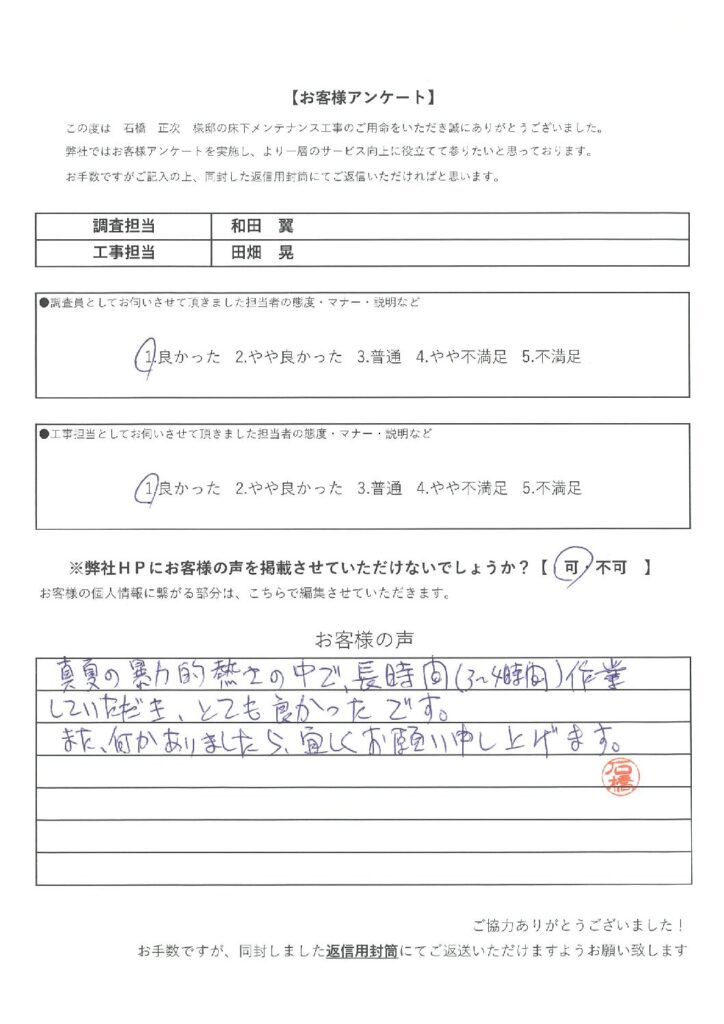 【お客様アンケート】
この度は　石橋　正次　様邸の床下メンテナンス工事のご用命をいただき誠にありがとうございました。
弊社ではお客様アンケートを実施し、より一層のサービス向上に役立てて参りたいと思っております。
お手数ですがご記入の上、同封した返信用封筒にてご返信いただければと思います。
調査担当　和田　翼
工事担当　田畑　晃
●調査員としてお伺いさせて頂きました担当者の態度・マナー・説明など
1.良かった　2.やや良かった　3.普通　4.やや不満足　5.不満足
●工事担当としてお伺いさせて頂きました担当者の態度・マナー・説明など
1.良かった　2.やや良かった　3.普通　4.やや不満足　5.不満足
※弊社ＨＰにお客様の声を掲載させていただけないでしょうか？【　可・不可　】
お客様の個人情報に繋がる部分は、こちらで編集させていただきます。
お客様の声
真夏の暴力的熱さの中で、長時間(3〜4時間)作業
していただき、とても良かったです。
また、何かありましたら、宜しくお願い申し上げます。
石橋
ご協力ありがとうございました！
お手数ですが、同封しました返信用封筒にてご返送いただけますようお願い致します